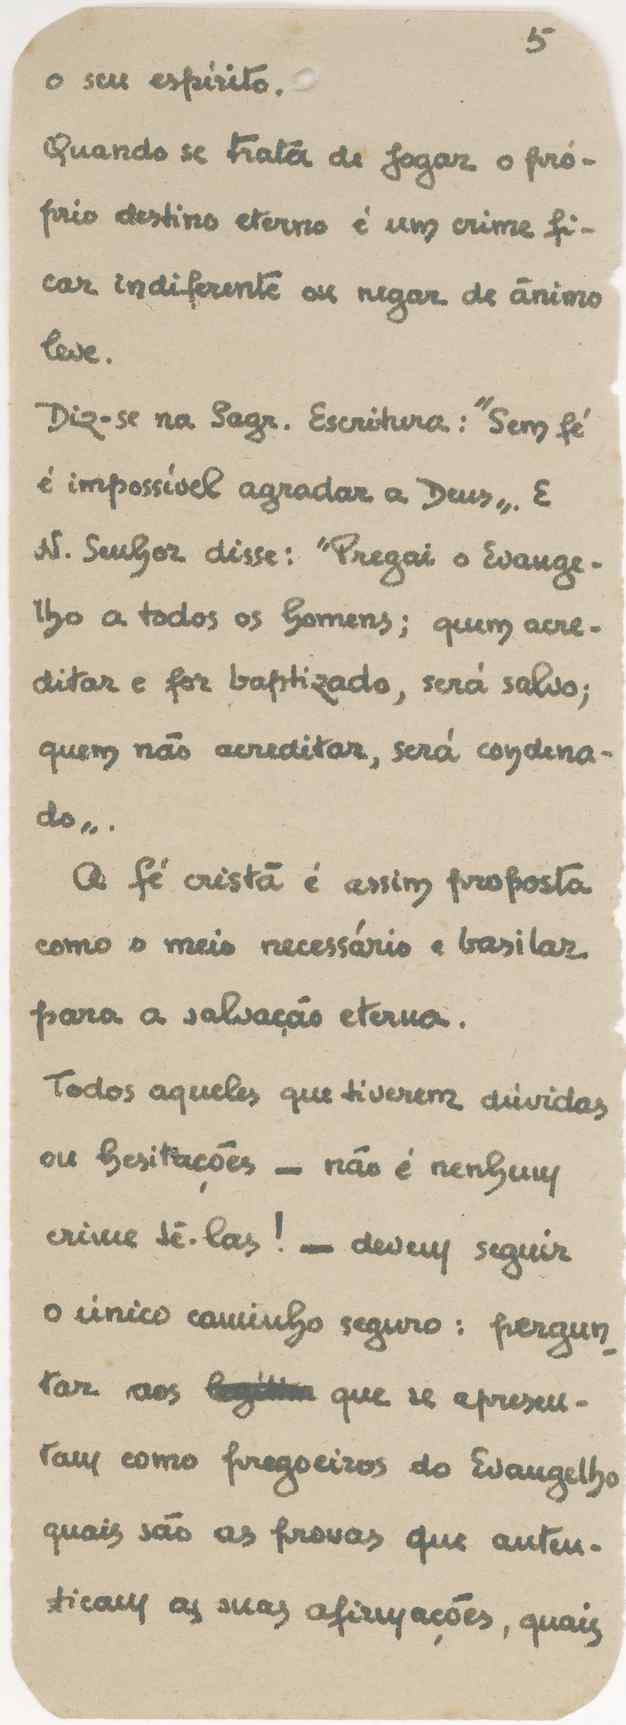 5
o seu espírito.
Quando se trata de jogar o pró-
prio destino eterno é um crime fi-
car indiferente ou negar de ânimo
leve.
Diz-se na Sagr. Escritura: "Sem fé
é impossível agradar a Deus„. E
N. Senhor disse: "Pregai o Evange-
lho a todos os homens; quem acre-
ditar e for baptizado, será salvo;
quem não acreditar, será condena-
do„.
A fé cristã é assim proposta
como o meio necessário e basilar
para a salvação eterna.
Todos aqueles que tiverem dúvidas
ou hesitações — não é nenhum
crime tê-las! — devem seguir
o único caminho seguro: pergun-
tar aos que se apresen-
tam como pregoeiros do Evangelho
quais são as provas que auten-
ticam as suas afirmações, quais